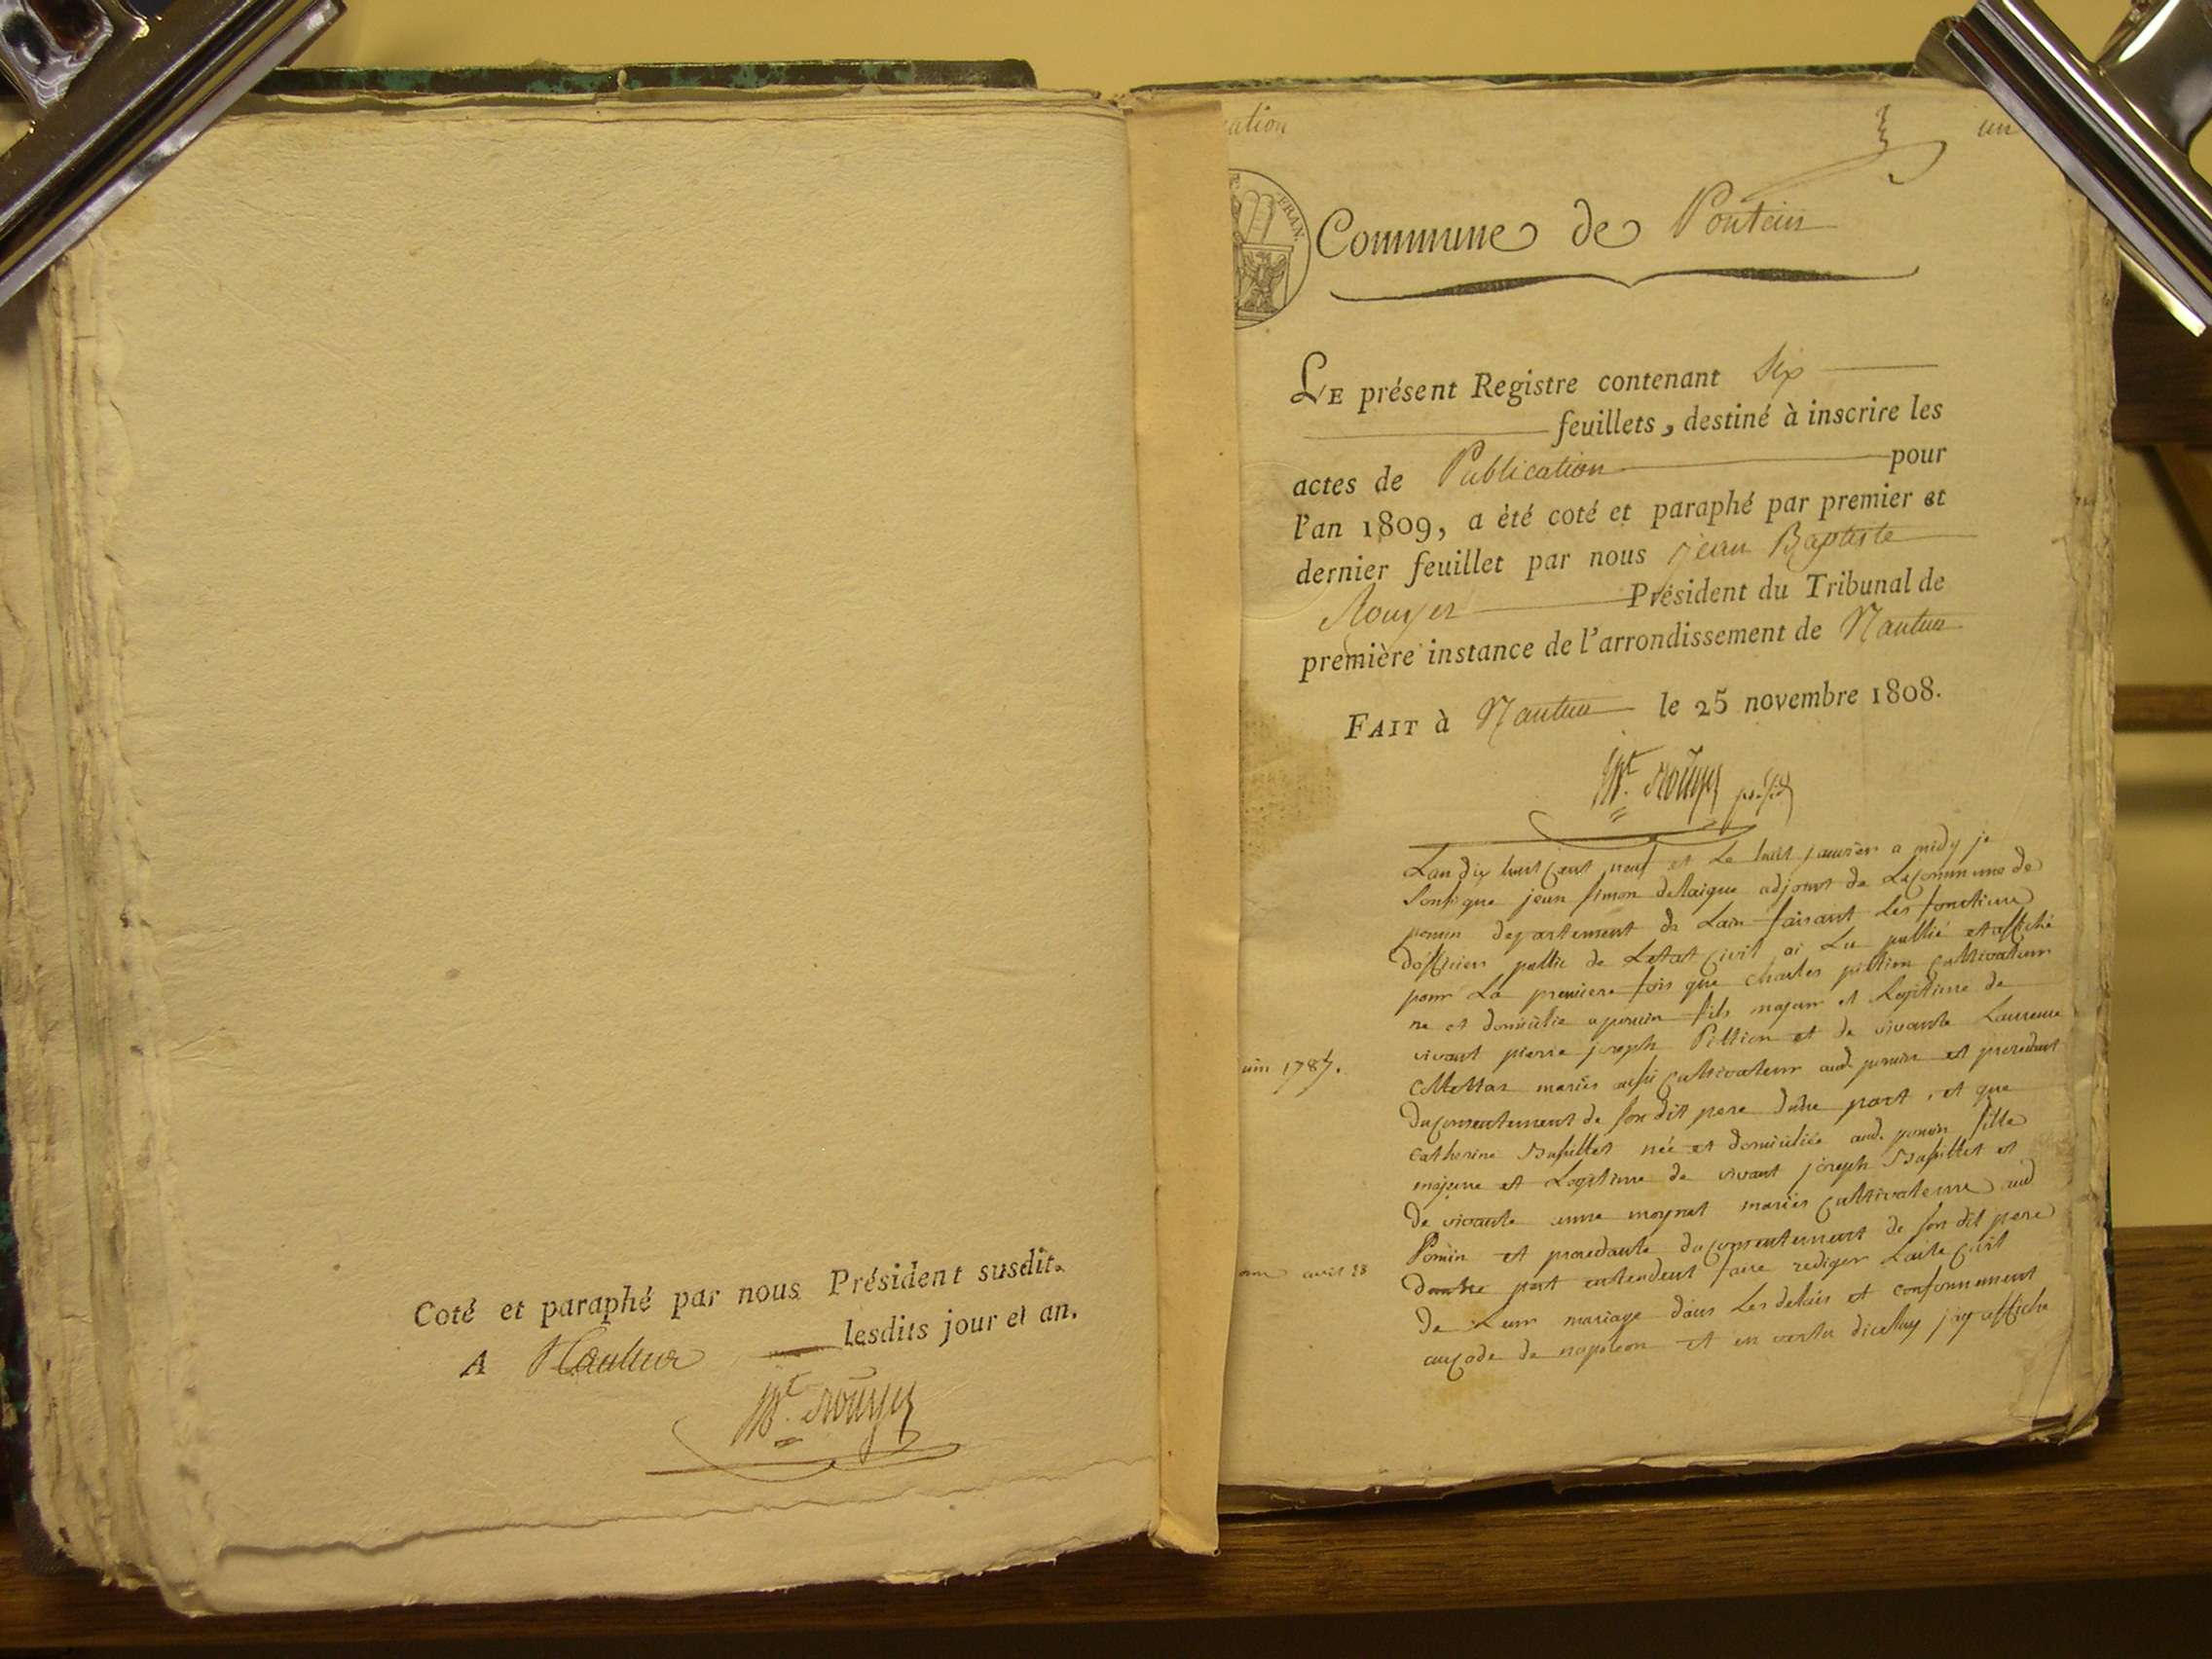 Coté et paraphé par nous Président susdit.
A Nantua lesdits jour et an.
Bt. Rouyer
ation
un
FRAN.
Commune de Pontein
LE présent Registre contenant Six
feuillets, destiné à inscrire les
actes de Publication pour
l'an 1809, a été coté et paraphé par premier et
dernier feuillet par nous jean Baptiste
Rouyer Président du Tribunal de
première instance de l'arrondissement de Nantua
FAIT à Nantua le 25 novembre 1808.
Bt. Rouyer présid
Lan dix huit cent neuf et Le huit janvier a midy je
Soussigne jean simon delaigue adjoint de La commune de
poncin departement de Lain faisant Les fonctions
dofficier public de Letat civil ai Lu publié et affiché
pour La premiere fois que charles pittion cultivateur
ne et domicilie a poncin fils majeur et Legitime de
vivant pierre joseph Pittion et de vivante Laurence
mariés aussi cultivateur aud. poncin et procedant
du consentement de son dit pere dune part, et que
catherine née et domiciliée aud. poncin fille
majeure et Legitime de vivant joseph et
de vivante anne moynet mariés cultivateurs aud
Poncin et procedante du consentement de son dit pere
dautre part entendent faire rediger Lacte civil
de Leur mariage dans Les delais et conformement
au code de napoleon et en vertu dicelluy jay affiche
uin 1787.
avril 88